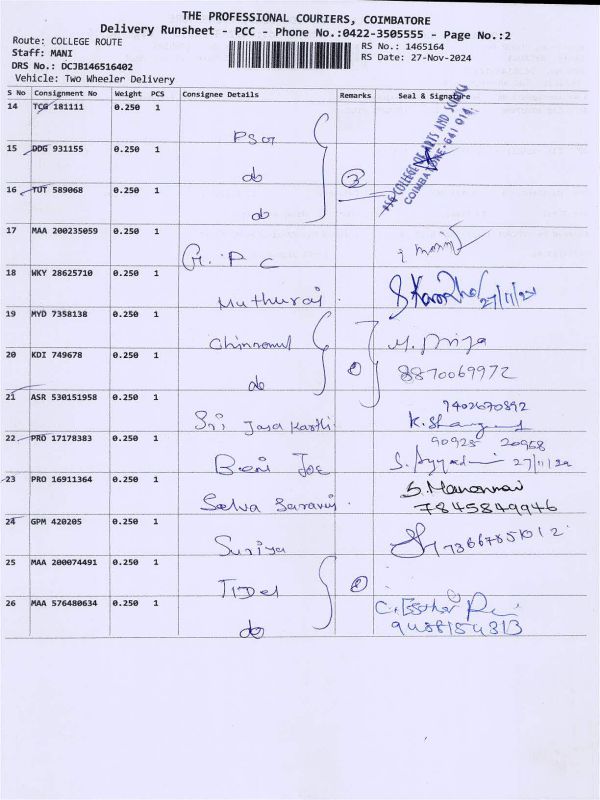 THE PROFESSIONAL COURIERS, COIMBATORE
Delivery Runsheet - PCC - Phone No.:0422-3505555 - Page No.:2
Route: COLLEGE ROUTE
RS No.: 1465164
Staff: MANI
RS Date: 27-Nov-2024
DRS No.: DCJB146516402
Vehicle: Two Wheeler Delivery
S No Consignment No Weight PCS Consignee Details Remarks Seal & Signature
14 TCG 181111 0.250 1
PSG
PSG COLLEGE OF ARTS AND SCIENCE
COIMBATORE-641 014
15 DDG 931155 0.250 1
do
16 TUT 589068 0.250 1
do
3
17 MAA 200235059 0.250 1
G.P C
18 WKY 28625710 0.250 1
Muthuraj
27/11/24
19 MYD 7358138 0.250 1
M. Priya
20 KDI 749678 0.250 1
do
8870069972
21 ASR 530151958 0.250 1
Sri Jaya Karthi
9402670892
22 PRO 17178383 0.250 1
Beni Joe
90925 20958
27/11/24
23 PRO 16911364 0.250 1
Selva Saravn
7845849946
24 GPM 420205 0.250 1
Suriya
25 MAA 200074491 0.250 1
TIDel
26 MAA 576480634 0.250 1
do
C. Esther